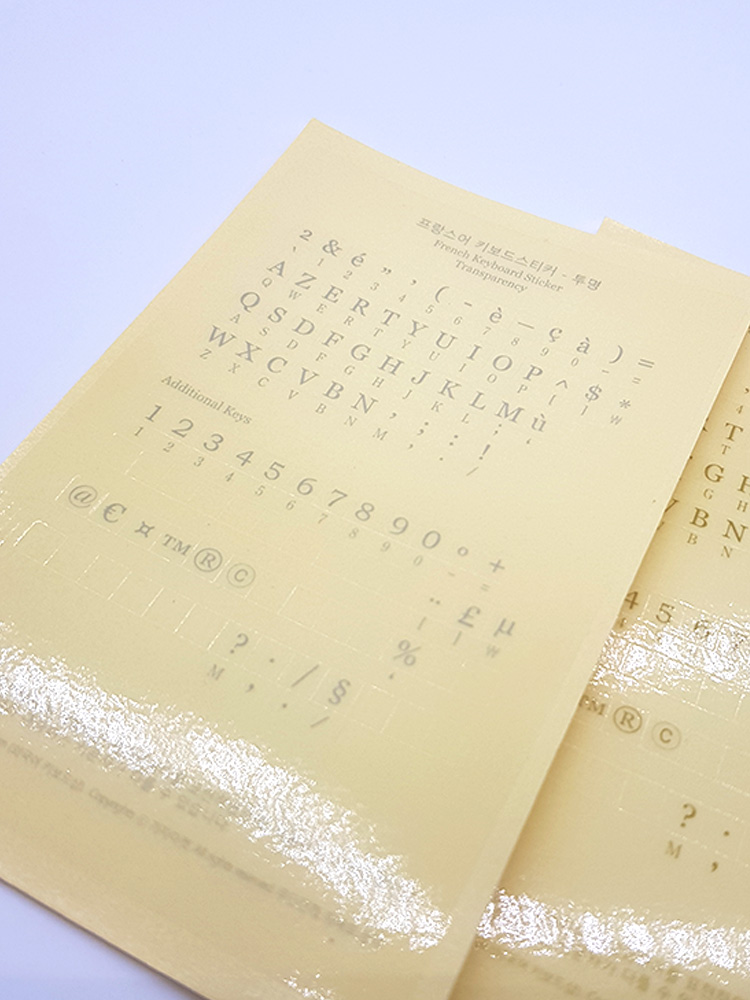 프랑스어 키보드스티커 - 투명
French Keyboard Sticker
Transparency
2 & é " ' ( - è — ç à ) =
` 1 2 3 4 5 6 7 8 9 0 - =
A Z E R T Y U I O P ^ $ *
Q W E R T Y U I O P [ ] ₩
Q S D F G H J K L M ù
A S D F G H J K L ; '
W X C V B N , ; : !
Z X C V B N M , . /
Additional Keys
1 2 3 4 5 6 7 8 9 0 ° +
1 2 3 4 5 6 7 8 9 0 - =
¨ £ µ
[ ] ₩
%
'
@ € ¤ TM ® ©
? . / §
M , . /
4
T
T
G H
G H
V B N
B N
4 5 6 7
TM ® ©
? .
M ,